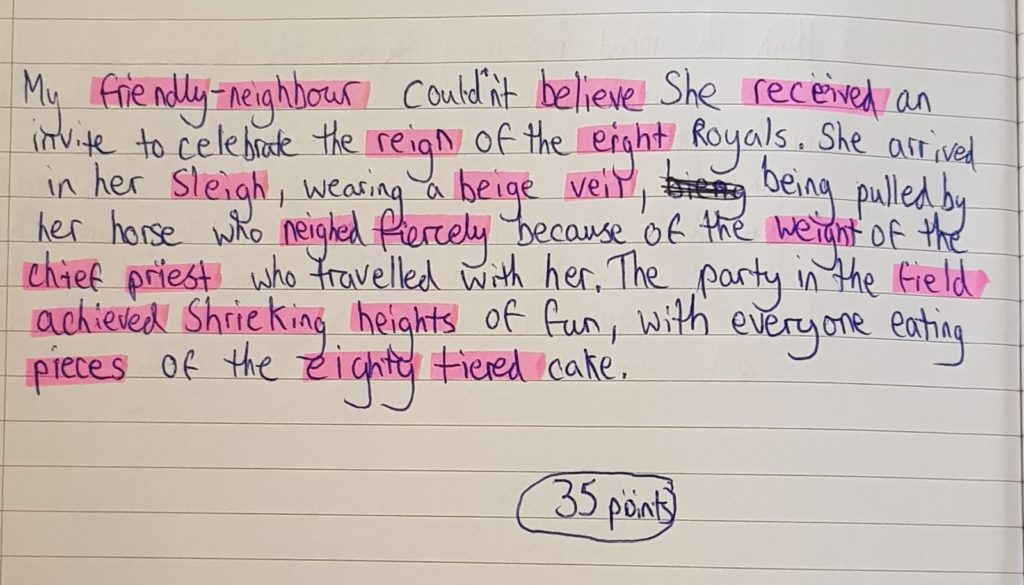 My friendly-neighbour couldn't believe She received an
invite to celebrate the reign of the eight Royals. She arrived
in her Sleigh, wearing a beige veil, being pulled by
her horse who neighed fiercely because of the weight of the
chief priest who travelled with her. The party in the field
achieved Shrieking heights of fun, with everyone eating
pieces of the eighty tiered cake.
35 points